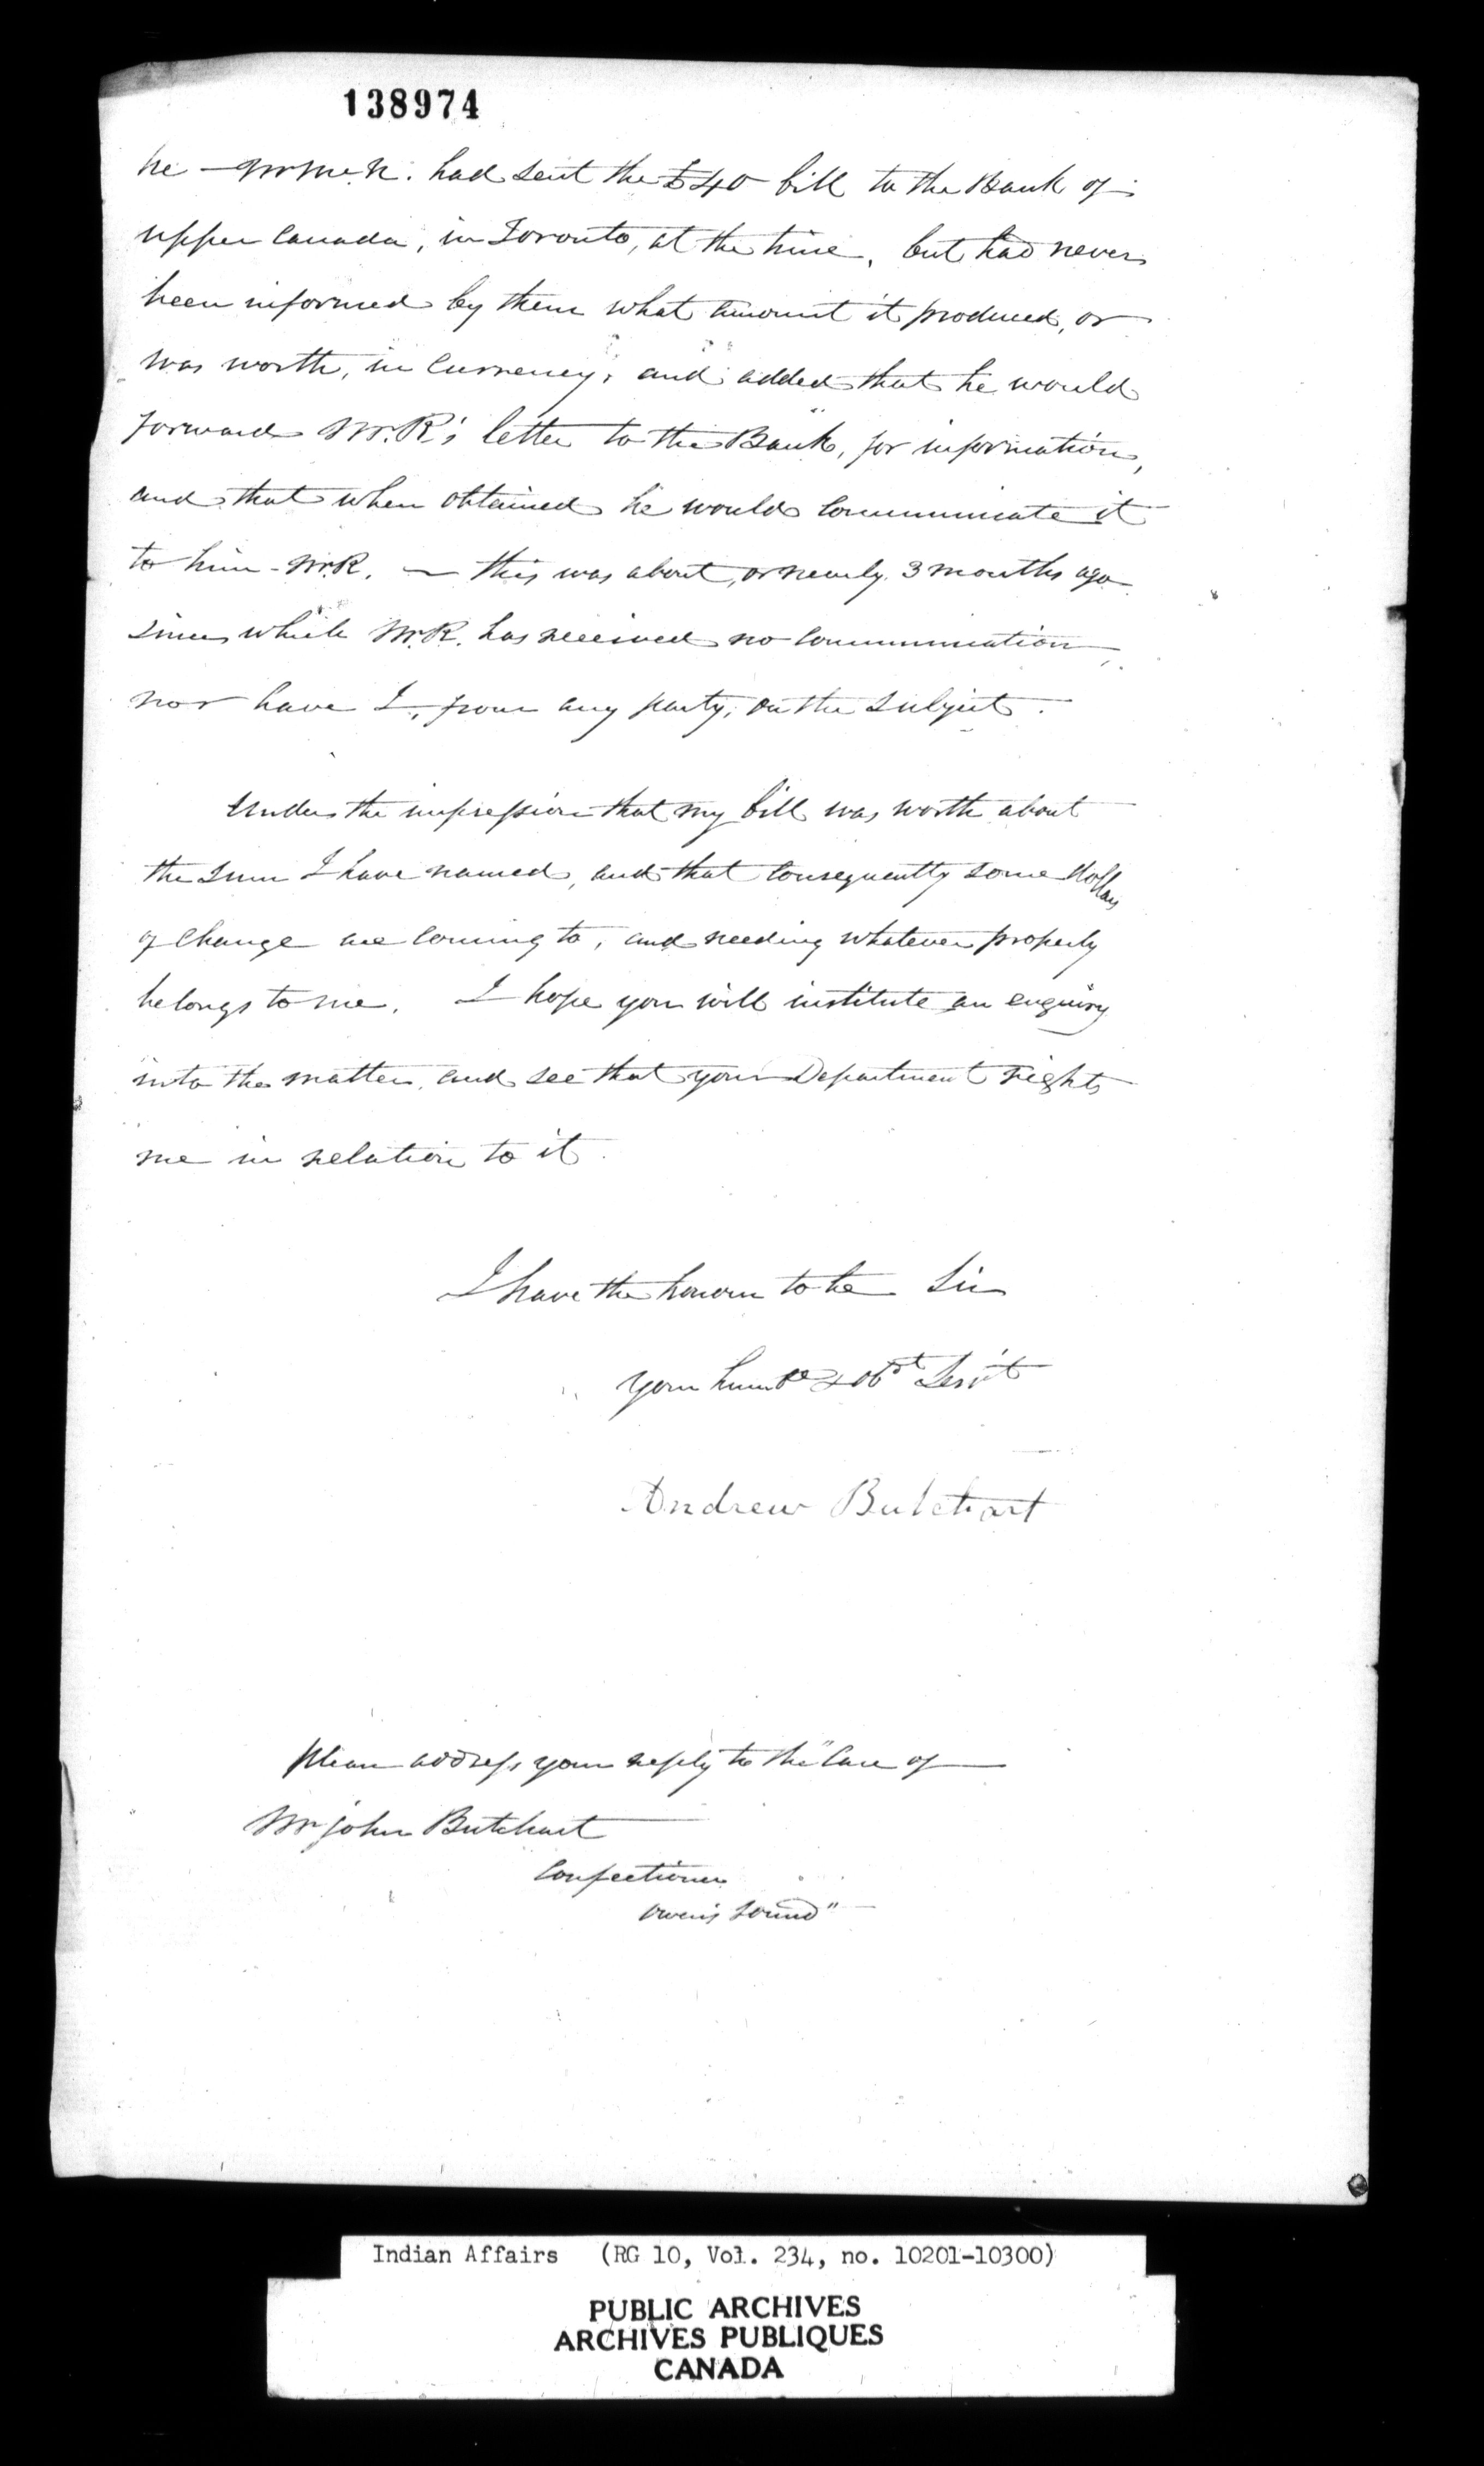 138974
he - Mr McN. had sent the £40 bill to the Bank of
upper Canada, in Toronto, at the time, but had never
been informed by them what amount it produced, or
was worth, in Currency, and added that he would
forward Mr. R's letter to the Bank, for information,
and that when obtained he would communicate it
to him - Mr R. — this was about, or nearly 3 months ago
since which Mr. R. has received no communication,
nor have I, from any party, on the subject.
Under the impression that my bill was worth about
the sum I have named, and that consequently some dollars
of change are coming to, and needing whatever properly
belongs to me. I hope you will institute an enquiry
into the matter, and see that your Department rights
me in relation to it.
I have the honour to be Sir
your humble & obt Servt
Andrew Butchart
please address your reply to the "Care of
Mr John Butchart
Confectioner
Owen's Sound"
Indian Affairs (RG 10, Vol. 234, no. 10201-10300)
PUBLIC ARCHIVES
ARCHIVES PUBLIQUES
CANADA